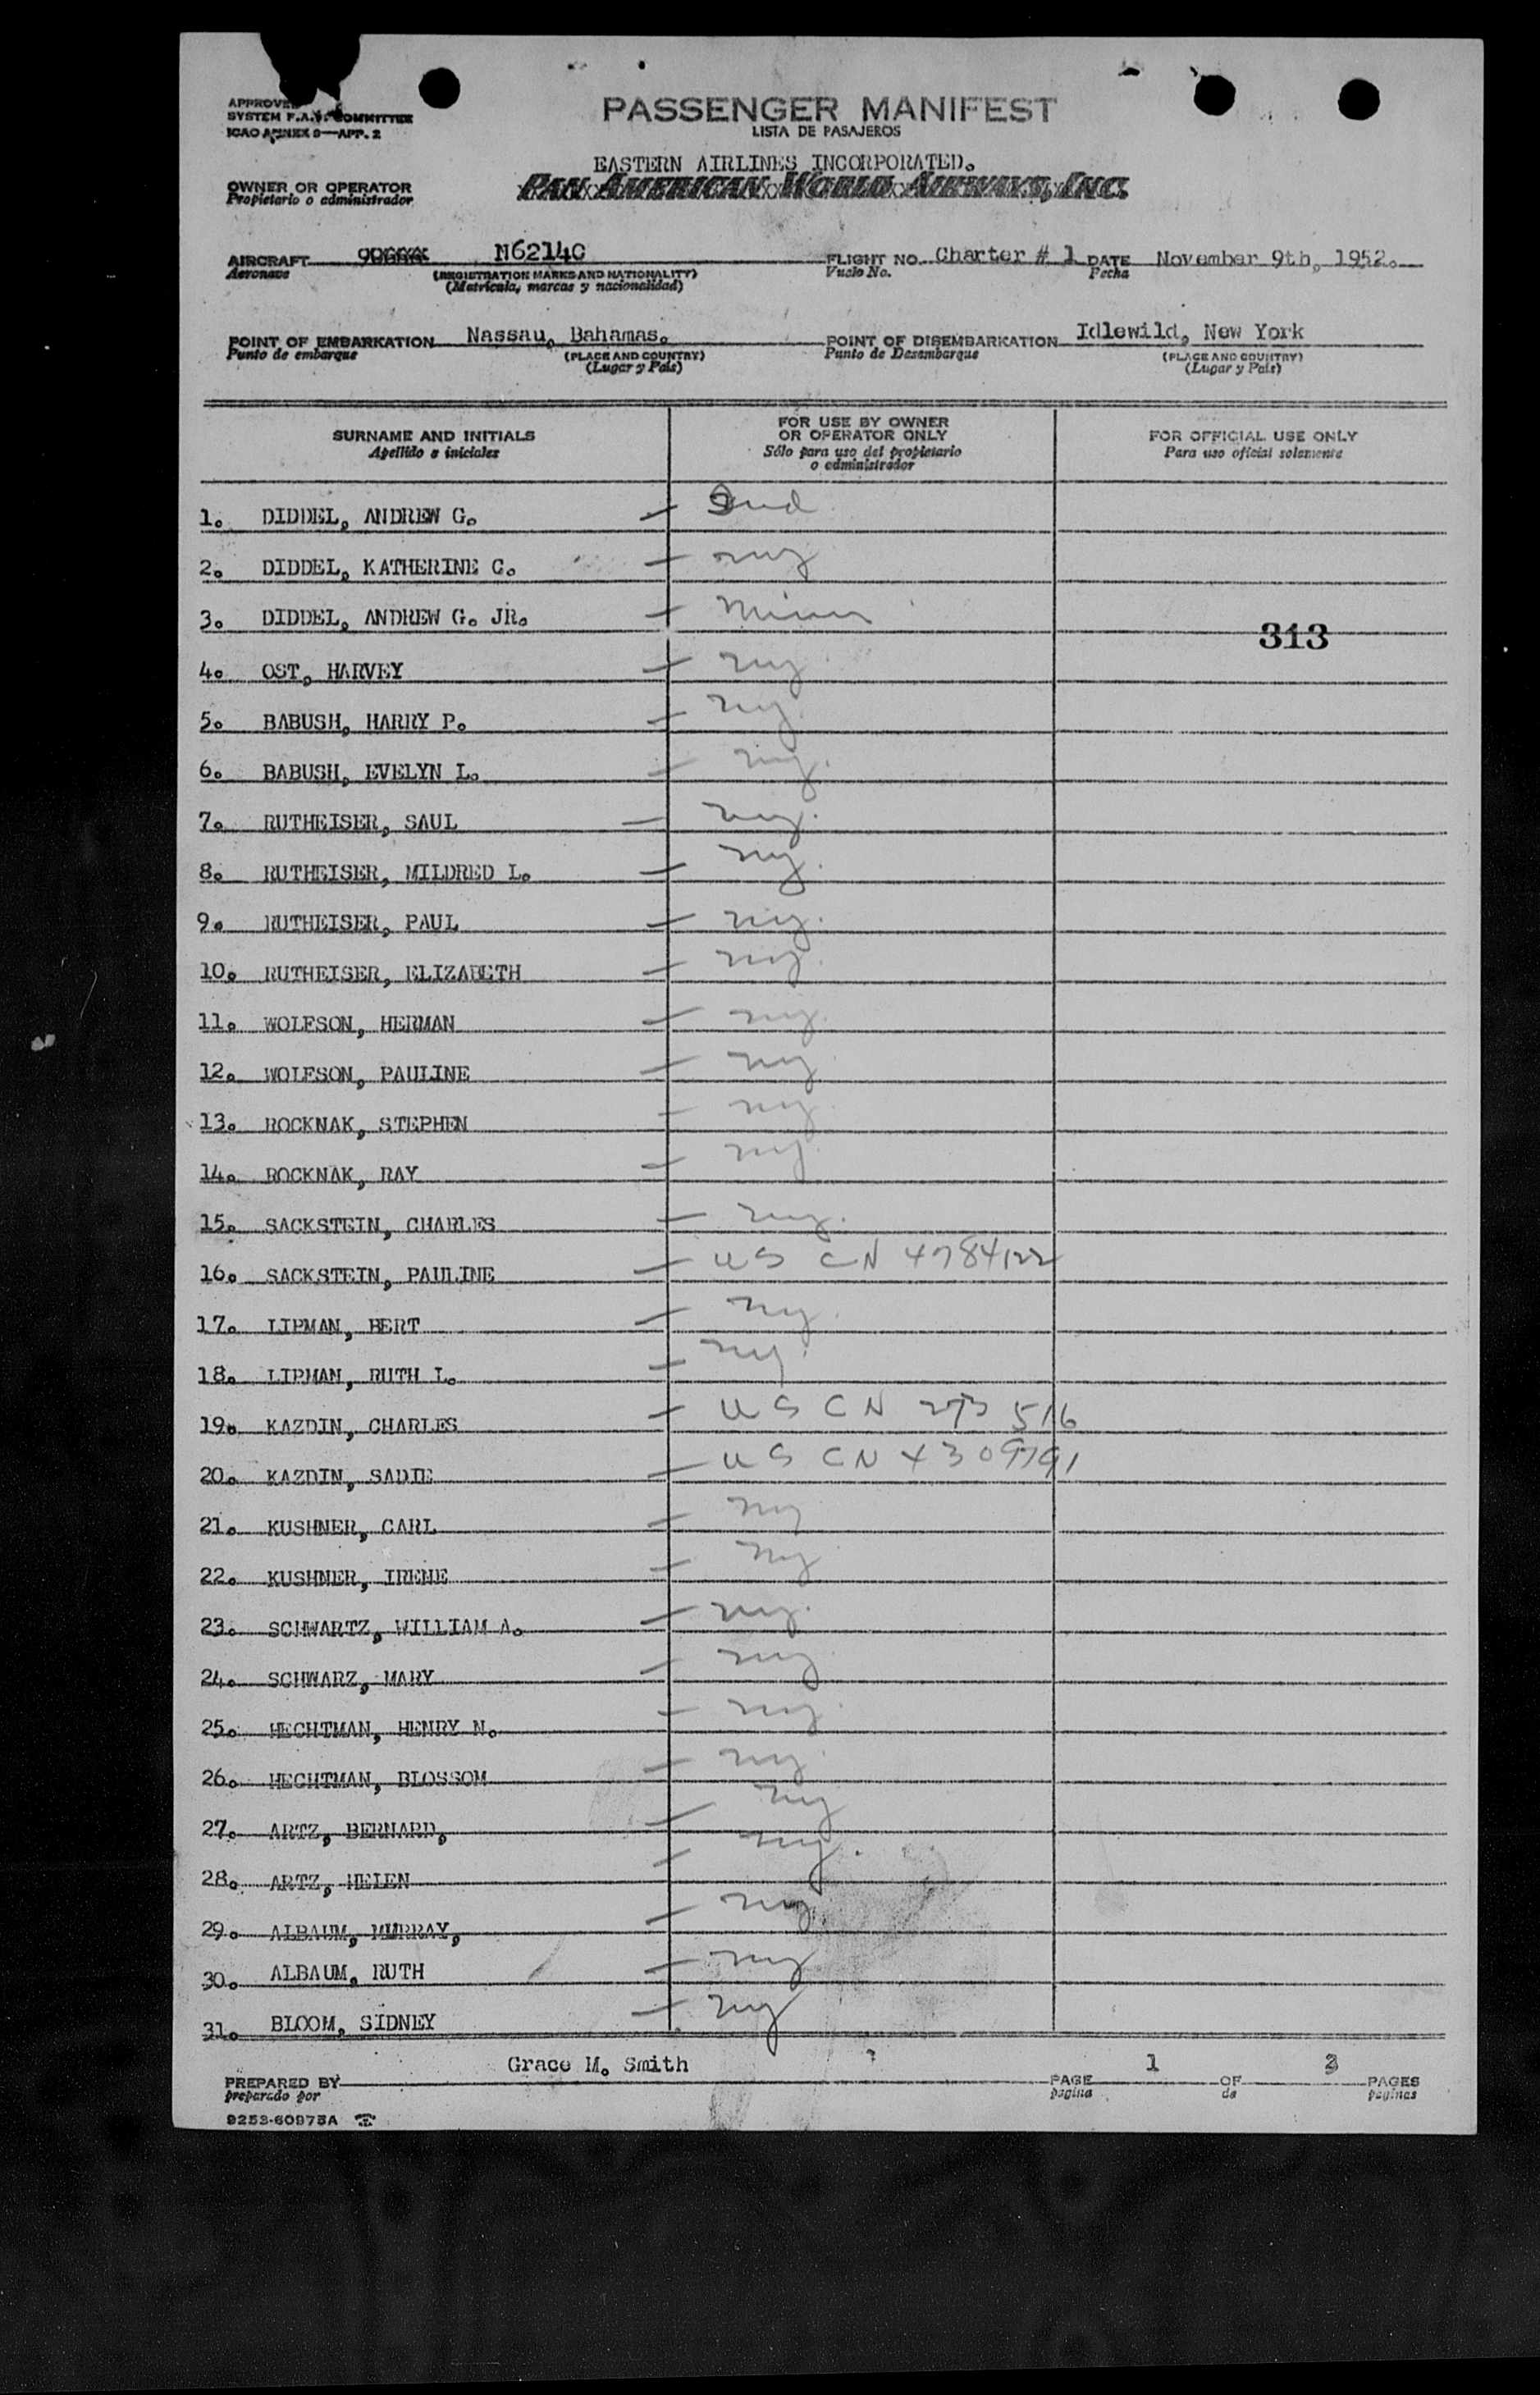 APPROVED
SYSTEM F.A.L. COMMITTEE
ICAO ANNEX 9—APP. 2
PASSENGER MANIFEST
LISTA DE PASAJEROS
EASTERN AIRLINES INCORPORATED.
OWNER OR OPERATOR
Propietario o administrador
PAN AMERICAN WORLD AIRWAYS, INC.
AIRCRAFT N6214C FLIGHT NO. Charter # 1 DATE November 9th, 1952.
Aeronave (REGISTRATION MARKS AND NATIONALITY) Vuelo No. Fecha
(Matrícula, marcas y nacionalidad)
POINT OF EMBARKATION Nassau, Bahamas. POINT OF DISEMBARKATION Idlewild, New York
Punto de embarque (PLACE AND COUNTRY) Punto de Desembarque (PLACE AND COUNTRY)
(Lugar y País) (Lugar y País)
SURNAME AND INITIALS
Apellido e iniciales
FOR USE BY OWNER
OR OPERATOR ONLY
Sólo para uso del propietario
o administrador
FOR OFFICIAL USE ONLY
Para uso oficial solamente
1. DIDDEL, ANDREW G. — Ind
2. DIDDEL, KATHERINE C. — ny
3. DIDDEL, ANDREW G. JR. — Minn
313
4. OST, HARVEY — ny
5. BABUSH, HARRY P. — ny.
6. BABUSH, EVELYN L. — ny.
7. RUTHEISER, SAUL — ny.
8. RUTHEISER, MILDRED L. — ny.
9. RUTHEISER, PAUL — ny.
10. RUTHEISER, ELIZABETH — ny.
11. WOLFSON, HERMAN — ny.
12. WOLFSON, PAULINE — ny
13. ROCKNAK, STEPHEN — ny
14. ROCKNAK, RAY — ny
15. SACKSTEIN, CHARLES — ny.
16. SACKSTEIN, PAULINE — US CN 4784122
17. LIPMAN, BERT — ny
18. LIPMAN, RUTH L. — ny.
19. KAZDIN, CHARLES — US CN 516
20. KAZDIN, SADIE — US CN
21. KUSHNER, CARL — ny
22. KUSHNER, IRENE — ny
23. SCHWARTZ, WILLIAM A. — ny.
24. SCHWARZ, MARY — ny
25. HECHTMAN, HENRY N. — ny
26. HECHTMAN, BLOSSOM — ny
27. ARTZ, BERNARD, — ny
28. ARTZ, HELEN — ny.
29. ALBAUM, MURRAY, — ny
30. ALBAUM, RUTH — ny
31. BLOOM, SIDNEY — ny
PREPARED BY Grace M. Smith PAGE 1 OF 3 PAGES
preparado por página de páginas
9253-60975A